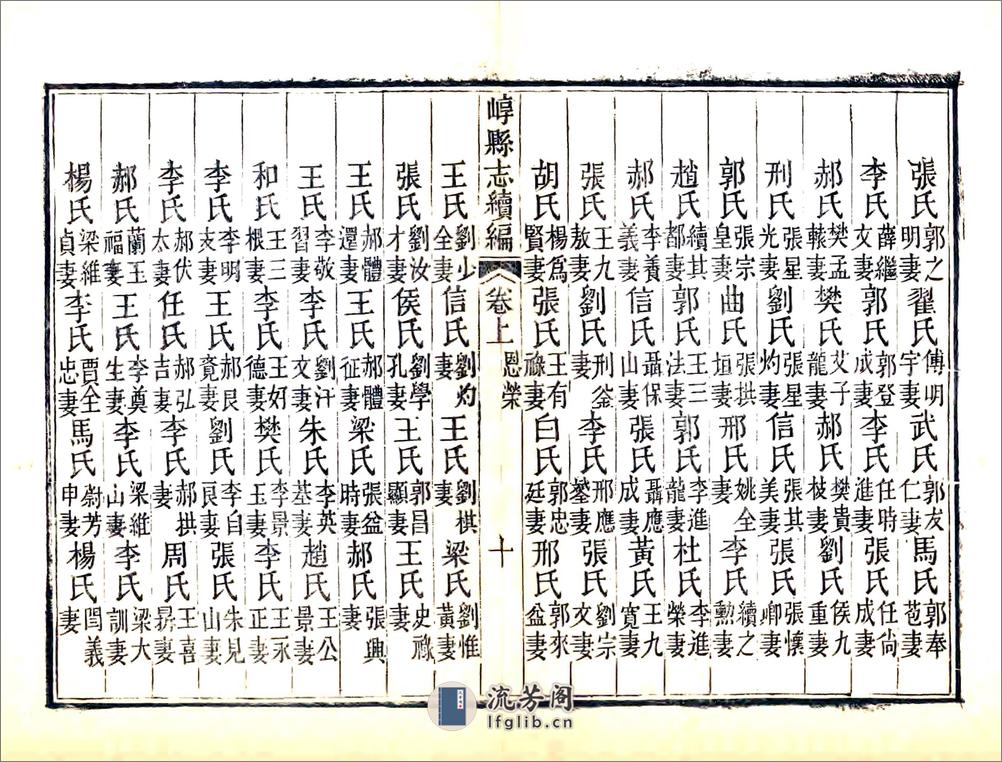 張氏郭之明妻翟氏傅明宇妻武氏郭友仁妻馬氏郭奉苞妻
李氏薛繼文妻郭氏郭登成妻李氏任時進妻張氏任尙成妻
郝氏樊孟轅妻樊氏艾子龍妻郝氏樊貴枝妻劉氏侯九重妻
刑氏張星光妻劉氏張星灼妻信氏張其美妻張氏張懷卿妻
郭氏張宗皇妻曲氏張拱垣妻邢氏姚全妻李氏續之勲妻
趙氏續其都妻郭氏王三法妻郭氏李進龍妻杜氏李進榮妻
郝氏李養義妻信氏聶保山妻張氏聶應成妻黃氏王九寬妻
張氏王九敖妻劉氏刑釜妻李氏邢應鏊妻張氏劉宗文妻
胡氏楊爲賢妻張氏王有祿妻白氏郭忠廷妻邢氏郭來益妻
崞縣志續編 卷上 恩榮 十
王氏劉少全妻信氏劉灼妻王氏劉棋妻梁氏劉惟黃妻
張氏劉汝才妻侯氏劉學孔妻王氏郭昌顯妻王氏史祿妻
王氏郝體還妻王氏郝體征妻梁氏張益時妻郝氏張興妻
王氏李敬習妻李氏劉汗文妻朱氏李英基妻趙氏王公景妻
和氏王三根妻李氏王好德妻樊氏李景玉妻李氏王永正妻
李氏李明支妻王氏郝良竟妻劉氏李自良妻張氏朱見山妻
李氏郝伏太妻任氏郝弘吉妻李氏郝拱妻周氏王喜昇妻
郝氏蘭玉福妻王氏李奠生妻李氏梁維山妻李氏梁大訓妻
楊氏梁維貞妻李氏賈全忠妻馬氏尉芳申妻楊氏閆義妻
流芳阁
lfglib.cn